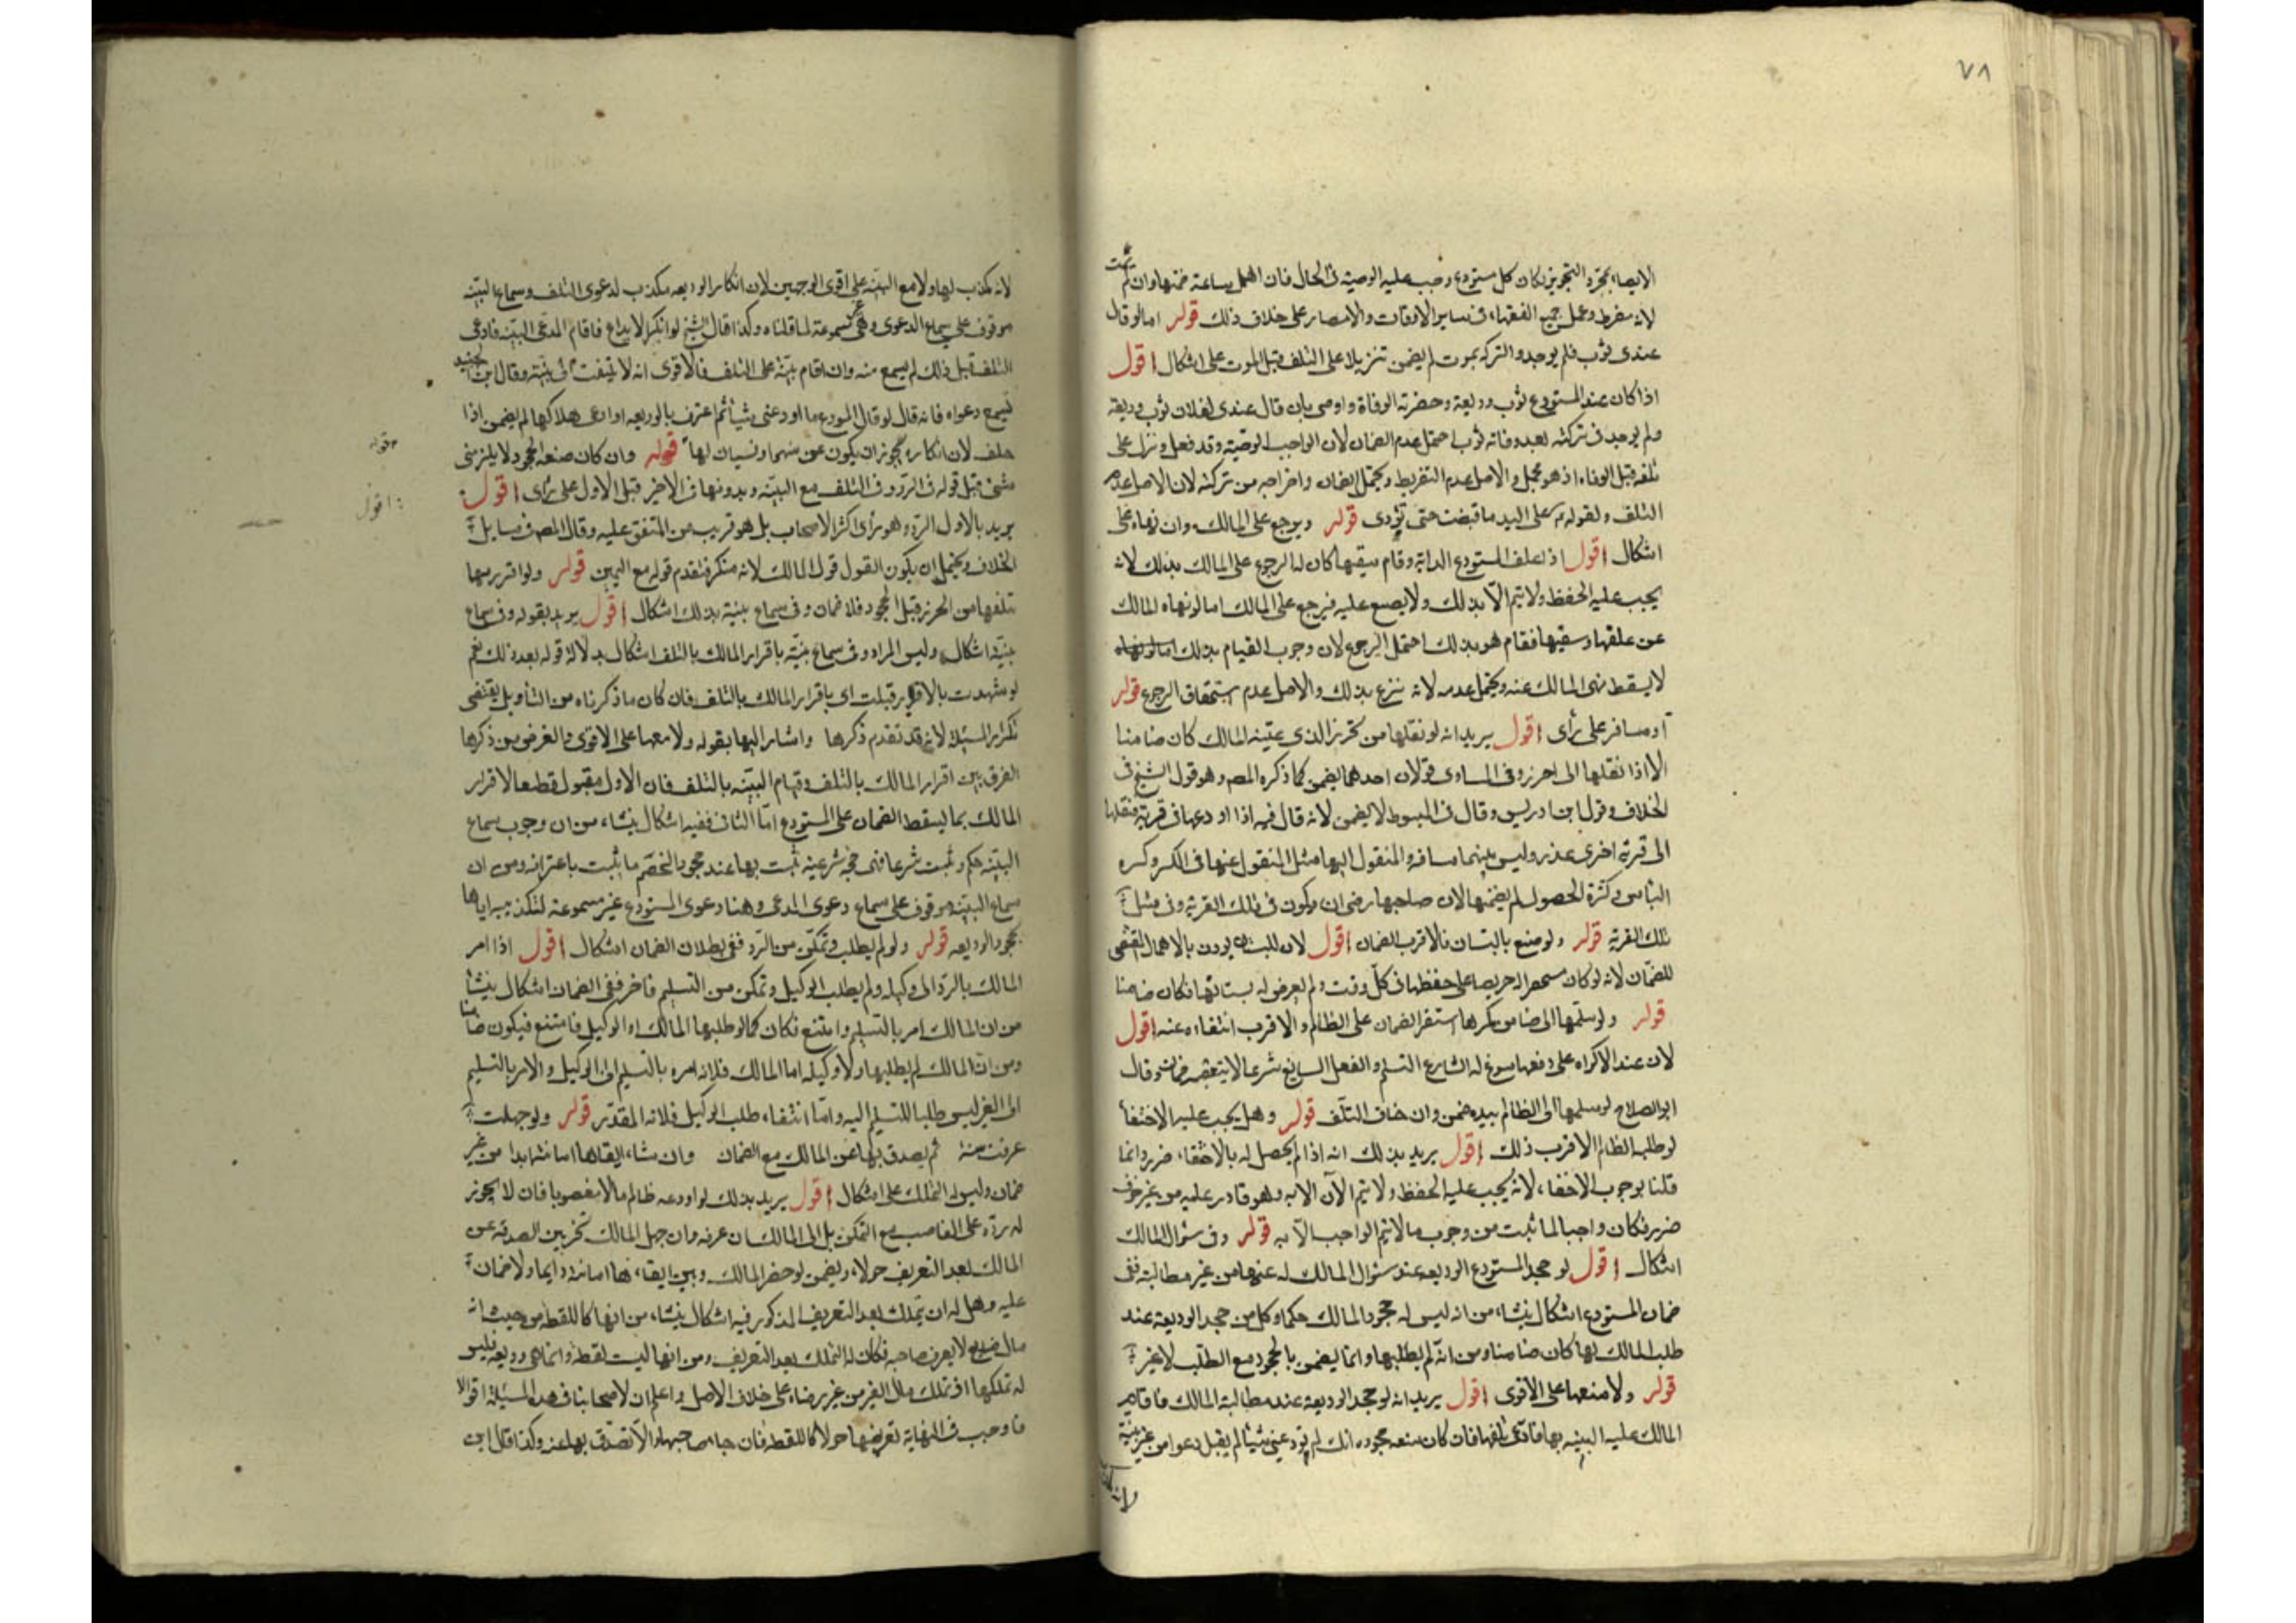 ٧٨
الايصاء بمجرد التجويز لكان كل مستودع وجب عليه الوصية فى الحال فان اهمل ساعة ضمنها وان لم يمت
لانه مفرط وعمل جميع الفقهاء فى ساير الاوقات والامصار على خلاف ذلك قوله اما لو قال
عندى ثوب فلم يوجد والتركة بموت لم يضمن تنزيلا على التلف قبل الموت على اشكال اقول
اذا كان عند المستودع ثوب وديعة وحضرته الوفاة واوصى بان قال عندى لفلان ثوب وديعة
ولم يوجد فى تركته بعد وفاته ثوب احتمل عدم الضمان لان الواجب الوصية وقد فعل ونزل على
تلفه قبل الوفاة اذ هو محتمل والاصل عدم التفريط ويحتمل الضمان واخراجه من تركته لان الاصل عدم
التلف ولقوله على اليد ما قبضت حتى تؤدى قوله ويرجع على المالك وان نهاه على
اشكال اقول اذا علف المستودع الدابة وقام بسقيها كان له الرجوع على المالك بذلك لانه
يجب عليه الحفظ ولا يتم الا بذلك ولا يصنع عليه فيرجع على المالك اما لو نهاه المالك
عن علفها وسقيها فقام هو بذلك احتمل الرجوع لان وجوب القيام بذلك
لا يسقط نهى المالك عنه ويحتمل عدمه لانه تبرع بذلك والاصل عدم استحقاق الرجوع قوله
او مسافر على رأى اقول يريد انه لو نقلها من الحرز الذى عينه المالك كان ضامنا
الا اذا نقلها الى احرز وفى المساوى قولان احدهما يضمن كما ذكره المصـ وهو قول الشيخ فى
الخلاف وقول ابن ادريس وقال فى المبسوط لا يضمن لانه قال فيه اذا اودعها فى قرية فنقلها
الى قرية اخرى عذر وليس بينهما مسافة والمنقول اليها مثل المنقول عنها فى الكر وكسره
الناس وكثرة الحصول لم يضمنها لان صاحبها رضى ان يكون فى تلك القرية وفى مثل
تلك القرية قوله ولو ضيع بالنسيان فالاقرب الضمان اقول لان النسيان يورن بالاهمال المقتضى
للضمان لانه لو كان مستحضرا له حريصا على حفظها فى كل وقت ولم يعرض له نسيانها فكان ضامنا
قوله ولو سلمها الى ضامن مكرها استقر الضمان على الظالم والاقرب انتفاءه عنه اقول
لان عند الاكراه على دفعها سوغ له الشارع التسليم والفعل السايغ شرعا لا يتعقبه ضمان وقال
ابو الصلاح لو سلمها الى الظالم بيده ضمن وان خاف التلف قوله وهل يجب عليه الاختفاء
لو طلبه الظالم الاقرب ذلك اقول يريد بذلك انه اذا لم يحصل له بالاختفاء ضرر وانما
قلنا بوجوب الاخفاء لانه يجب عليه الحفظ ولا يتم الآن الا به وهو قادر عليه من غير خوف
ضرر فكان واجبا لما ثبت من وجوب ما لا يتم الواجب الا به قوله وفى سؤال المالك
اشكال اقول لو جحد المستودع الوديعة عند سؤال المالك له عنها من غير مطالبة ففى
ضمان المستودع اشكال ينشأ من انه ليس له جحود المالك حكما وكل من جحد الوديعة عند
طلب المالك لها كان ضامنا ومن انه لم يطلبها وانما يضمن بالجحود مع الطلب لا غير
قوله ولا معها على الاقوى اقول يريد انه لو جحد الوديعة عند مطالبة المالك فاقام
المالك عليه البينه بها فادعى تلفها فان كان صنعه جحوده انك لم تودعنى شيئا لم يقبل دعواه من غير بينة
لانه مكذب
لانه مكذب لها ولا مع البينة على اقوى الوجهين لان انكار الوديعه مكذب لدعوى التلف وسماع البينة
موقوف على سماع الدعوى وهى غير مسموعة لما قلناه وكذا قال الشيخ لو انكر الايداع فاقام المدعى البينة فادعى
التلف قبل ذلك لم يسمع منه وان اقام بينة على التلف فالاقوى انه لا يلتفت الى بينته وقال ابن الجنيد
تسمع دعواه فانه قال لو قال المودع ما اودعنى شيئا ثم اعترف بالوديعه او ادعى هلاكها لم يضمن اذا
حلف لان انكاره يجوز ان يكون عن سهو او نسيان لها قوله وان كان صنعه الجحود لا يلزمنى
شئ قبل قوله فى الرد وفى التلف مع البينه وبدونها فى الاخير قبل الاول على رأى اقول
يريد بالاول الرد وهو رأى اكثر الاصحاب بل هو قريب من المتفق عليه وقال المصـ فى مسايل
الخلاف ويحتمل ان يكون القول قول المالك لانه منكر فتقدم قوله مع اليمين قوله ولو اقر ربها
بتلفها من الحرز قبل الجحود فلا ضمان وفى سماع بينة بذلك اشكال اقول يريد بقوله وفى سماع
بينة اشكال وليس المراد وفى سماع بينة باقرار المالك بالتلف اشكال بدلالة قوله بعد ذلك نعم
لو شهدت بالاقرار قبلت اى باقرار المالك بالتلف فان كان ما ذكرناه من التأويل يقتضى
تكرار المسئلة لانه قد تقدم ذكرها واشار اليها بقوله ولا معها على الاقوى والغرض من ذكرها
الفرق بين اقرار المالك بالتلف وقيام البينه بالتلف فان الاول مقبول قطعا لاقرار
المالك بما يسقط الضمان على المستودع اما الثانى ففيه اشكال ينشأ من ان وجوب سماع
البينه حكم ثبت شرعا فهى حجة شرعية ثبت بها عند جحود الخصم ما ثبت باعترافه ومن ان
سماع البينه موقوف على سماع دعوى المدعى وهنا دعوى المستودع غير مسموعة لتكذيبه اياها
بجحود الوديعه قوله ولو لم يطلب وتمكن من الرد ففى بطلان الضمان اشكال اقول اذا امر
المالك بالرد الى وكيله ولم يطلب الوكيل وتمكن من التسليم فاخر ففى الضمان اشكال ينشأ
من ان المالك امر بالتسليم وامتنع فكان كما لو طلبها المالك او الوكيل فامتنع فيكون ضامنا
ومن ان المالك لم يطلبها ولا وكيله اما المالك فلانه امره بالتسليم الى الوكيل والامر بالتسليم
الى الغير ليس طلبا للتسليم اليه واما انتفاء طلب الوكيل فلانه المقدر قوله ولو جهلت
عرفت سنة ثم يصدق بها عن المالك مع الضمان وان شاء ابقاها امانة ابدا من غير
ضمان وليس له التملك على اشكال اقول يريد بذلك لو اودعه ظالم مالا مغصوبا فان لا يجوز
له رده على الغاصب مع التمكن بل الى المالك ان عرفه وان جهل المالك تخير بين الصدقة عن
المالك بعد التعريف حولا ويضمن لو حضر المالك وبين ابقاءها امانة دايما ولا ضمان
عليه وهل له ان يتملك بعد التعريف المذكور فيه اشكال ينشأ من انها كاللقطة من حيث انه
مال ضايع لا يعرف صاحبه فكان له التملك بعد التعريف ومن انها ليست لقطة وانما هى وديعة فليس
له تملكها اذ تملك مال الغير من غير رضاه على خلاف الاصل واعلم ان لاصحابنا فى هذه المسئلة اقوالا
فاوجب فى النهاية تعريفها حولا كاللقطة فان جاء صاحبها والا تصدق بها عنه وكذا قال ابن
قوله
اقول